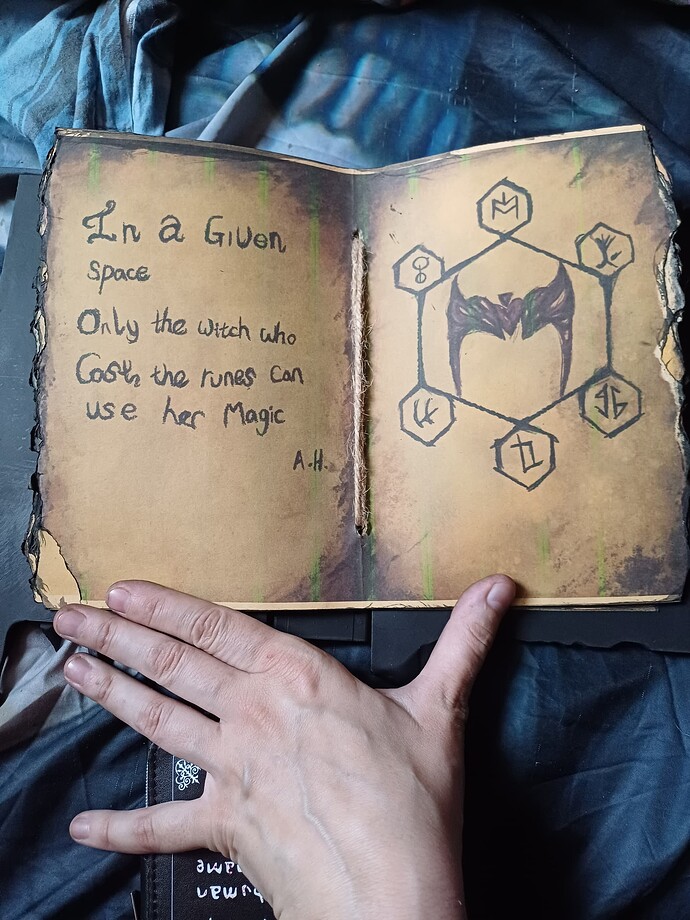 In a Given
space
Only the witch who
Casts the runes can
use her Magic
A.H.
human
name